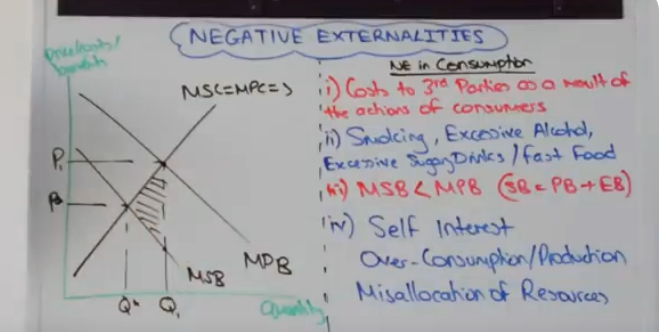 NEGATIVE EXTERNALITIES
Price/Costs/
benefits
MSC=MPC=S
P₁
P*
MPB
MSB
Q*
Q₁
Quantity
NE in Consumption
i) Costs to 3rd Parties as a result of
the actions of consumers
ii) Smoking, Excessive Alcohol,
Excessive Sugary Drinks / Fast Food
iii) MSB < MPB (SB = PB + EB)
iv) Self Interest
Over-Consumption/Production
Misallocation of Resources